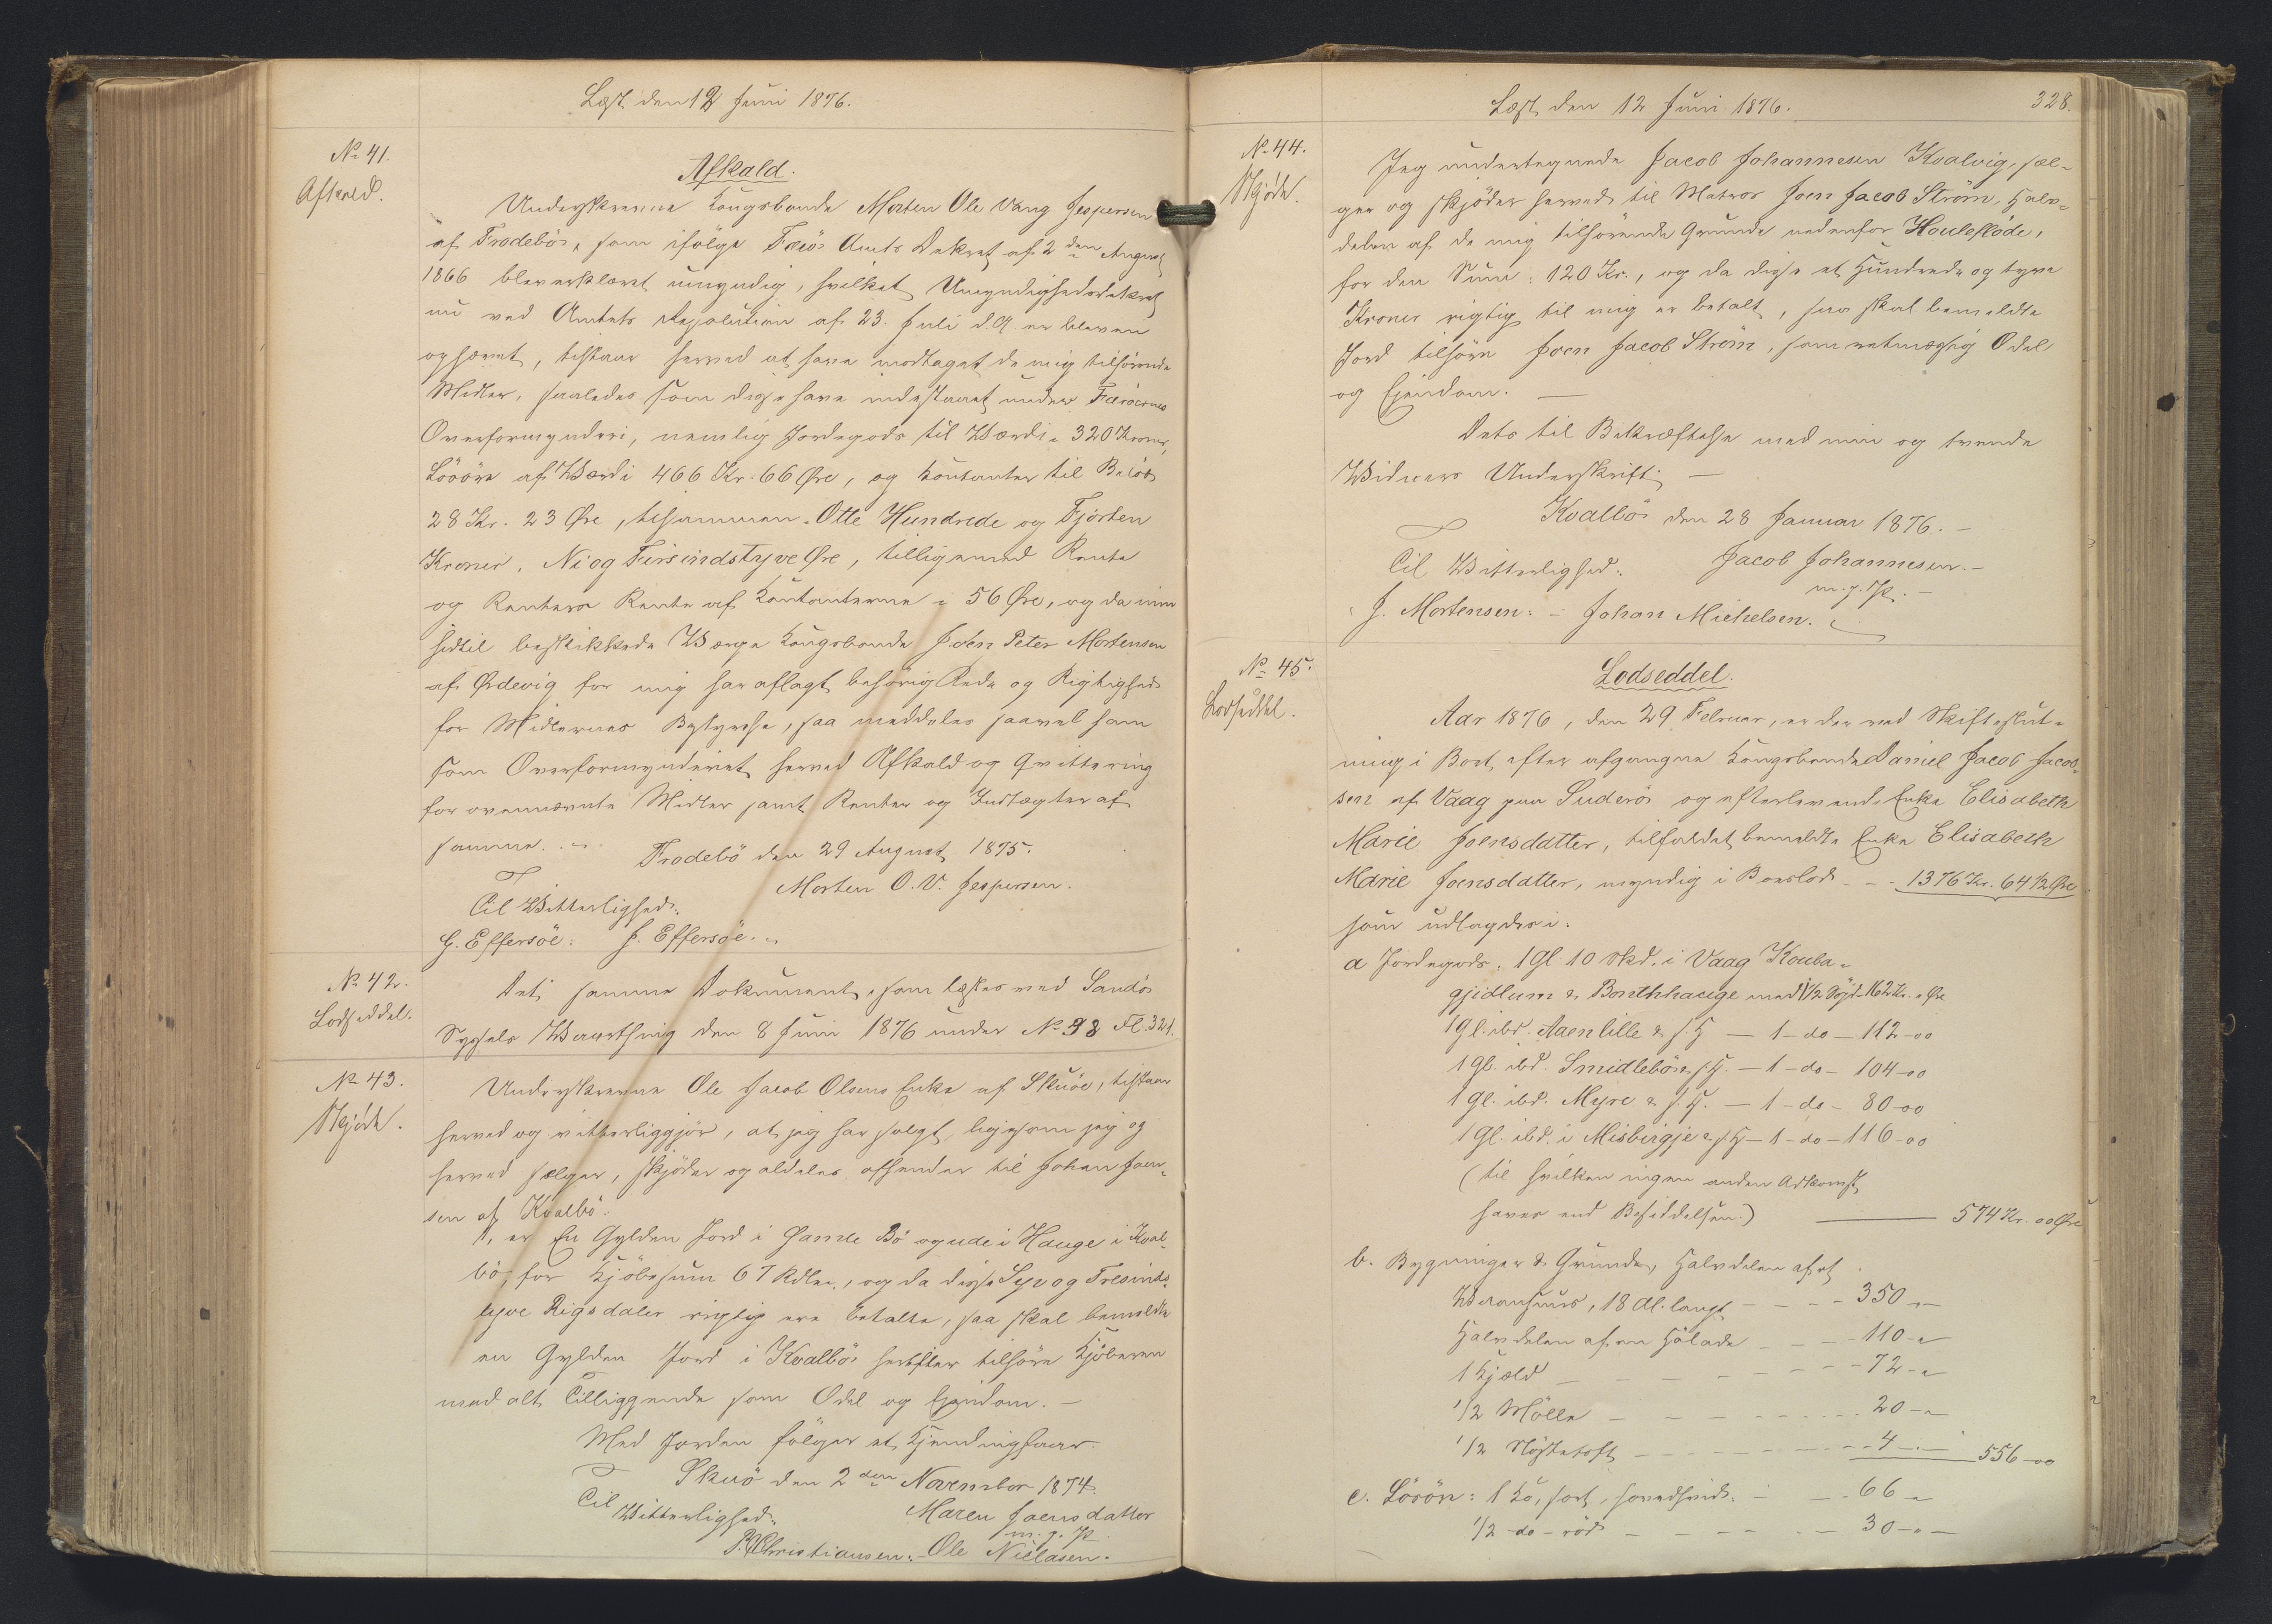 Læst den 12 Juni 1876.
No 41.
Afkald.
Afkald.
Underskrevne Kongsbonde Morten Ole Vang Jespersen
af Frodebö, som ifölge Færö Amts Dekret af 2den August
1866 blev erklæret umyndig, hvilket Umyndighedsdekret
nu ved Amtets Resolution af 23. Juli d.A. er bleven
ophævet, tilstaar herved at have modtaget de mig tilhörende
Midler, saaledes som disse have indestaaet under Færöernes
Overformynderi, nemlig Jordegods til Værdi 320 Kroner,
Lösöre af Værdi 466 Kr. 66 Øre, og Kontanter til Belöb
28 Kr. 23 Øre, tilsammen Otte Hundrede og Fjorten
Kroner, Ni og Firsindstyve Øre, tilligemed Rente
og Renters Rente af Kontanterne 56 Øre, og da min
hidtil beskikkede Værge Kongsbonde Joen Peter Mortensen
af Ørdevig for mig har aflagt behörig Rede og Rigtighed
for Midlernes Bestyrelse, saa meddeles saavel ham
som Overformynderiet herved Afkald og Qvittering
for ovennævnte Midler samt Renter og Indtægter af
samme.
Frodebö den 29 August 1875.
Morten O. V. Jespersen.
Til Vitterlighed:
G. Effersöe. J. Effersöe.
No 42.
Lodseddel.
Det samme Dokument, som læstes ved Sandö
Syssels Vaarthing den 8 Juni 1876 under No. 38 Fl. 321.
No 43.
Skjöde.
Underskrevne Ole Jacob Olsens Enke af Skuöe, tilstaar
herved og vitterliggjör, at jeg har solgt, ligesom jeg og
herved sælger, skjöder og aldeles afhender til Johan Joen-
sen af Kvalbö:
1, en Gylden Jord i Gamle Bö og ude i Hauge i Kval-
bö, for Kjöbesum 67 Rdlr., og da disse Syv og Tresinds-
tyve Rigsdaler rigtig ere betalte, saa skal bemeldte
en Gylden Jord i Kvalbö herefter tilhöre Kjöberen
med alt Tilliggende som Odel og Ejendom. –
Med Jorden fölger et Kjendingfaar.
Skuö den 2den November 1874.
Til Vitterlighed: Maren Joensdatter
m. f. P.
P. Christiansen. Ole Nielasen.
Læst den 12 Juni 1876.
328.
No 44.
Skjöde.
Jeg undertegnede Jacob Johannesen Kvalvig, sæl-
ger og skjöder herved til Matros Joen Jacob Ström, Halv-
delen af de mig tilhörende Grunde nedenfor Houleflöde,
for den Sum: 120 Kr., og da disse et Hundrede og tyve
Kroner rigtig til mig er betalt, saa skal bemeldte
Jord tilhöre Joen Jacob Ström, som retmæssig Odel
og Ejendom. —
Dets til Bekræftelse med min og tvende
Vidners Underskrift. —
Kvalbö den 28 Januar 1876. –
Til Vitterlighed: Jacob Johannesen. –
m. f. P. –
J. Mortensen. – Johan Michelsen.
No 45.
Lodseddel.
Lodseddel.
Aar 1876, den 29 Februar, er der ved Skifteslut-
ning i Boet efter afgangne Kongsbonde Daniel Jacob Jacob-
sen af Vaag paa Suderö og efterlevende Enke Elisabeth
Marie Joensdatter, tilfaldet bemeldte Enke Elisabeth
Marie Joensdatter, myndig i Boeslod - - 1376 Kr. 64 1/2 Øre
som udlagdes i:
a Jordegods: 1 Gl. 10 Skd. i Vaag Kouba-
gjidlum & Bonthhauge med 1 1/2 Söyd 162 Kr. " Øre
1 Gl. ibd. Aaen lille & f. H — 1 – do – 112 – 00
1 Gl. ibd. Smidlebö & f. H. – 1 – do – 104 – 00
1 Gl. ibd. Myre & f. H. — 1 – do – 80 – 00
1 Gl. ibd. i Misbergje & f. H – 1 – do – 116 – 00
(til hvilken ingen anden Adkomst
haves end Besiddelsen.) ——— 574 Kr. 00 Øre
b. Bygninger & Grunde, Halvdelen af et
Vaanhuus, 18 Al. langt - - - - 350 –
Halvdelen af en Hölade - - - 110 –
1 Hjæld - - - - - - - - 72 –
1/2 Mölle - - - - - - - 20 –
1/2 Nöstetoft - - - - - - 4 – 556 – 00
c. Lösöre: 1 Ko, sort, hovedhvid - - 66 –
1/2 – do – röd - - - - - 30 – " –